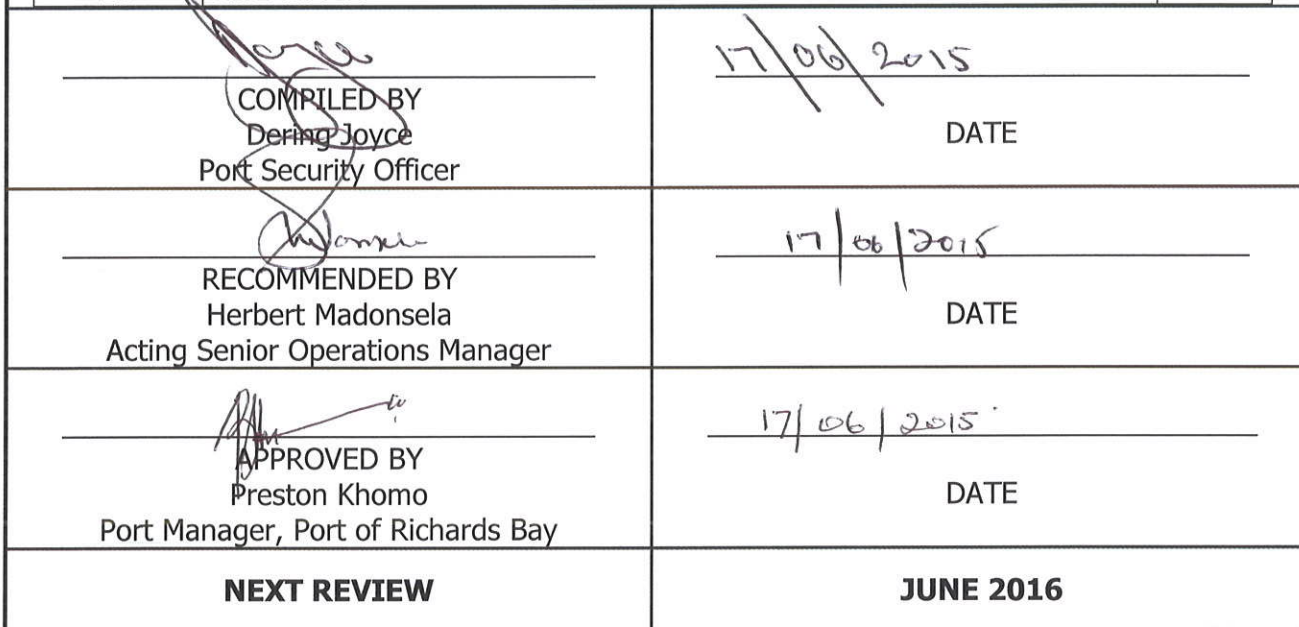 17/06/2015
COMPILED BY
Dering Joyce
DATE
Port Security Officer
17/06/2015
RECOMMENDED BY
Herbert Madonsela
DATE
Acting Senior Operations Manager
17/06/2015
APPROVED BY
Preston Khomo
DATE
Port Manager, Port of Richards Bay
NEXT REVIEW
JUNE 2016